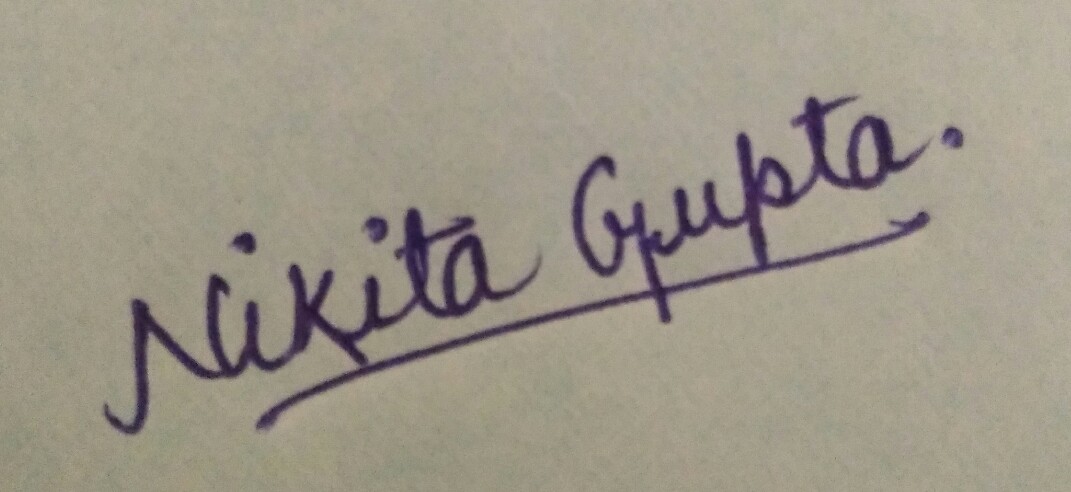 Nikita Gupta.